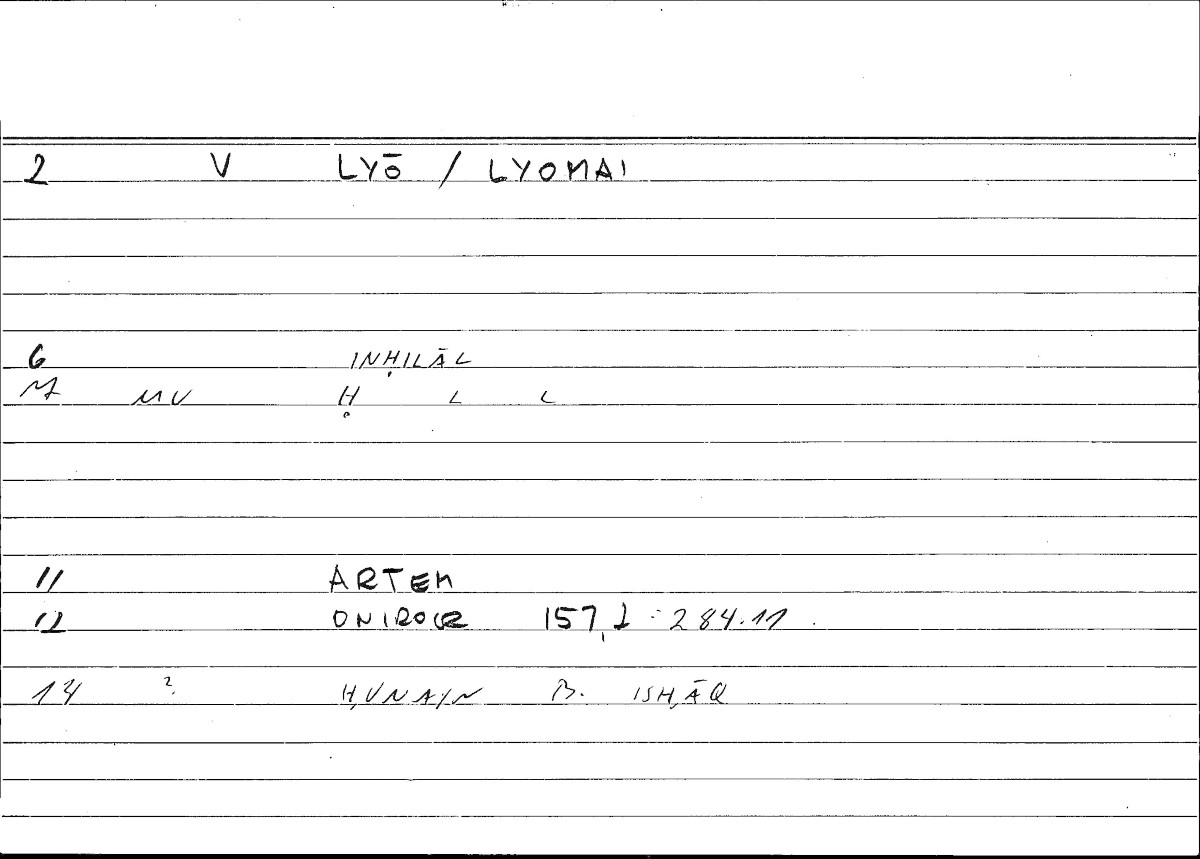 2 V LYŌ / LYOMAI
6 INḤILĀL
MV Ḥ L L
11 ARTEM
12 ONIROCR 157,1 = 284.11
14 ? ḤUNAYN B. ISḤĀQ